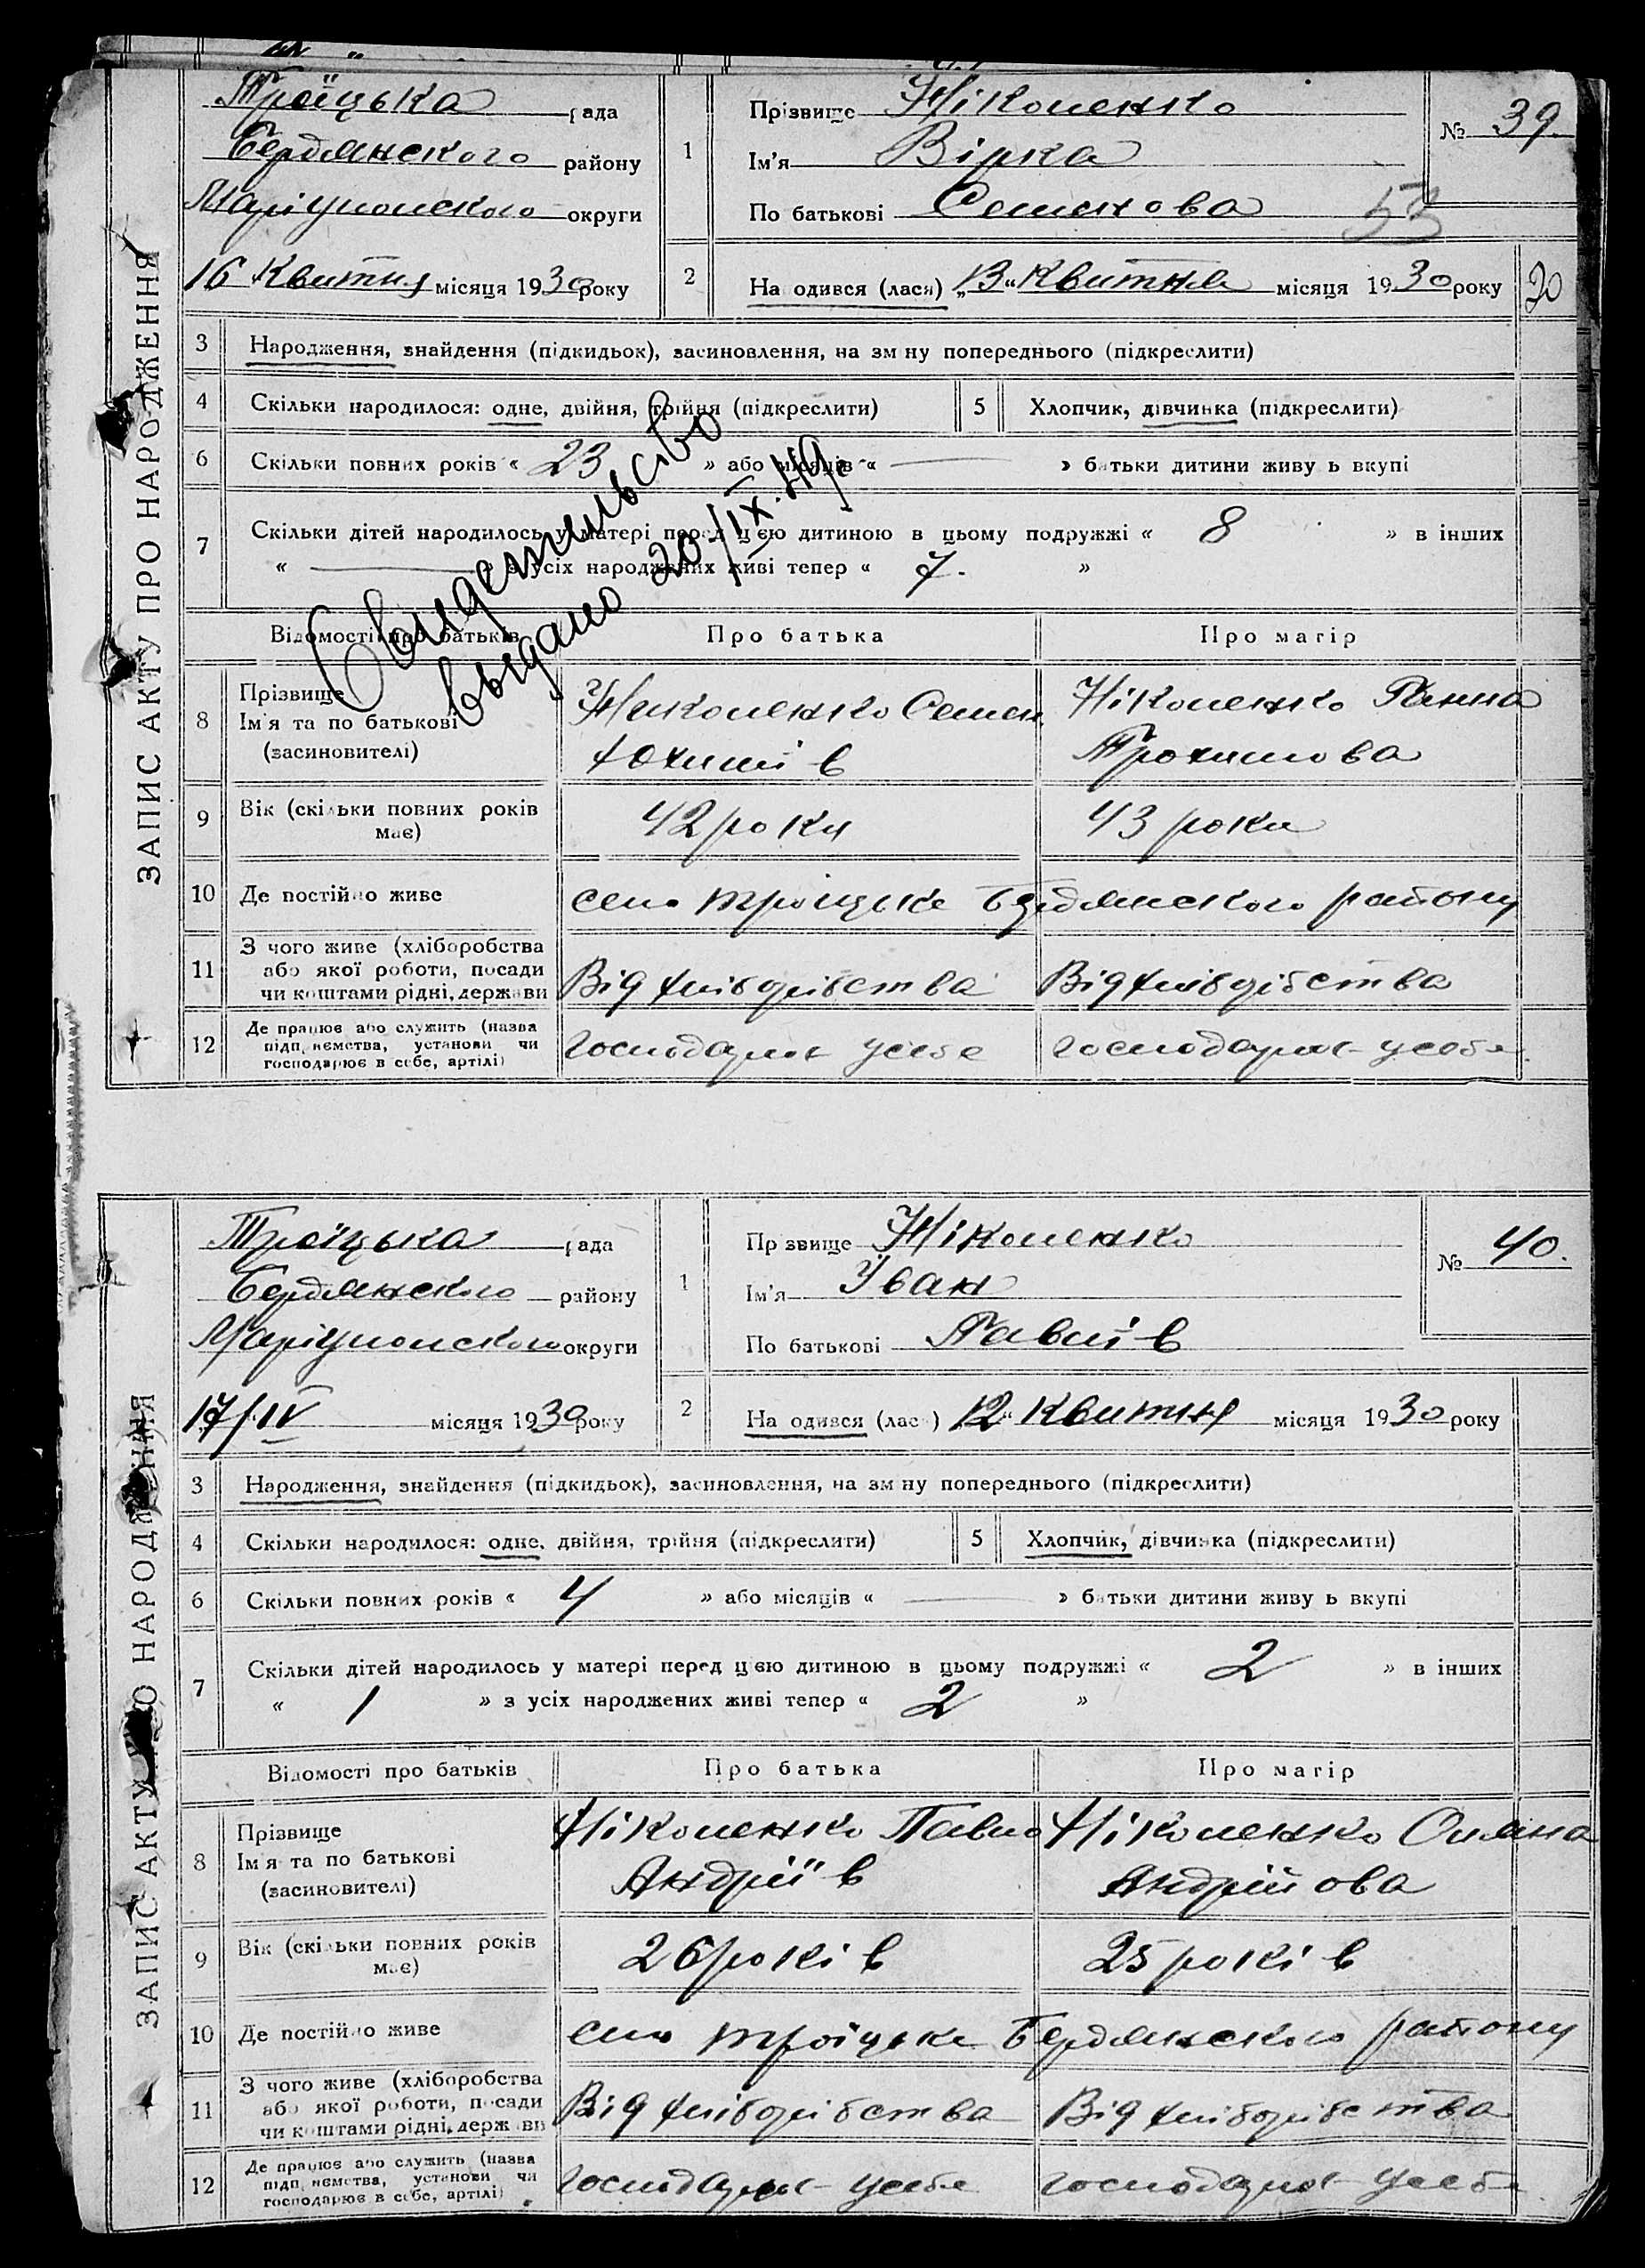 ЗАПИС АКТУ ПРО НАРОДЖЕННЯ
Троїцька рада
Бердянского району
Маріупольского округи
16 Квітня місяця 1930 року
1 Прізвище Ніколенко
Ім'я Вірка
По батькові Семенова
№ 39.
53
2 На одився (лася) „13“ Квітня місяця 1930 року
20
3 Народження, знайдення (підкидьок), засиновлення, на зм ну попереднього (підкреслити)
4 Скільки народилося: одне, двійня, трійня (підкреслити) 5 Хлопчик, дівчинка (підкреслити)
6 Скільки повних років « 23 » або місяців « — » батьки дитини живу ь вкупі
7 Скільки дітей народилось у матері перед цією дитиною в цьому подружжі « 8 » в інших
« — » з усіх народжених живі тепер « 7. »
Свидетельство
выдано 20/IX.49.
Відомості про батьків Про батька Про матір
8 Прізвище
Ім'я та по батькові
(засиновителі)
Ніколенко Семен
Юхимів
Ніколенко Ганна
Трохимова
9 Вік (скільки повних років
має)
42 роки 43 роки
10 Де постійно живе село Троїцьке Бердянского району
11 З чого живе (хліборобства
або якої роботи, посади
чи коштами рідні, держави
Від хліборобства Від хліборобства
12 Де працює або служить (назва
підп иємства, установи чи
господарює в себе, артілі)
господарює усебе господарює усебе
ЗАПИС АКТУ ПРО НАРОДЖЕННЯ
Троїцька рада
Бердянского району
Маріупольского округи
17/IV місяця 1930 року
1 Пр звище Ніколенко
Ім'я Іван
По батькові Павлів
№ 40.
2 На одився (лас ) „12“ Квітня місяця 1930 року
3 Народження, знайдення (підкидьок), засиновлення, на зм ну попереднього (підкреслити)
4 Скільки народилося: одне, двійня, трійня (підкреслити) 5 Хлопчик, дівчинка (підкреслити)
6 Скільки повних років « 4 » або місяців « — » батьки дитини живу ь вкупі
7 Скільки дітей народилось у матері перед цією дитиною в цьому подружжі « 2 » в інших
« 1 » з усіх народжених живі тепер « 2 »
Відомості про батьків Про батька Про матір
8 Прізвище
Ім'я та по батькові
(засиновителі)
Ніколенко Павло
Андріїв
Ніколенко Оляна
Андрійова
9 Вік (скільки повних років
має)
26 років 25 років
10 Де постійно живе село Троїцьке Бердянского району
11 З чого живе (хліборобства
або якої роботи, посади
чи коштами рідні, держави
Від хліборобства Від хліборобства
12 Де працює або служить (назва
підп иємства, установи чи
господарює в себе, артілі)
господарює усебе господарює усебе